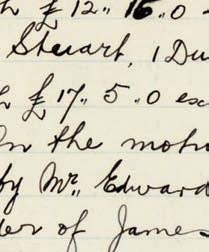 h £12„ 15„0
Steuart, 1 Du
h £17„ 5„0 exc
In the moti
by Mr. Edward
der of James